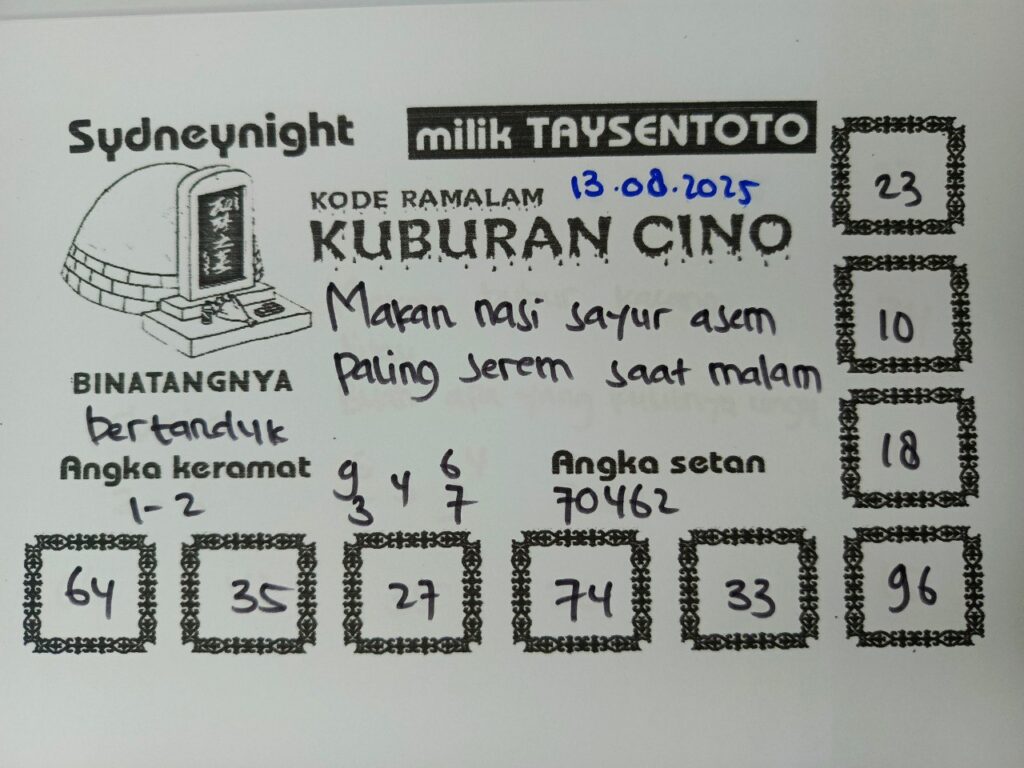 Sydneynight
milik TAYSENTOTO
KODE RAMALAM 13.08.2025
KUBURAN CINO
Makan nasi sayur asem
paling serem saat malam
BINATANGNYA
bertanduk
Angka keramat
1-2
9 6
4
3 7
Angka setan
70462
23
10
18
64 35 27 74 33 96